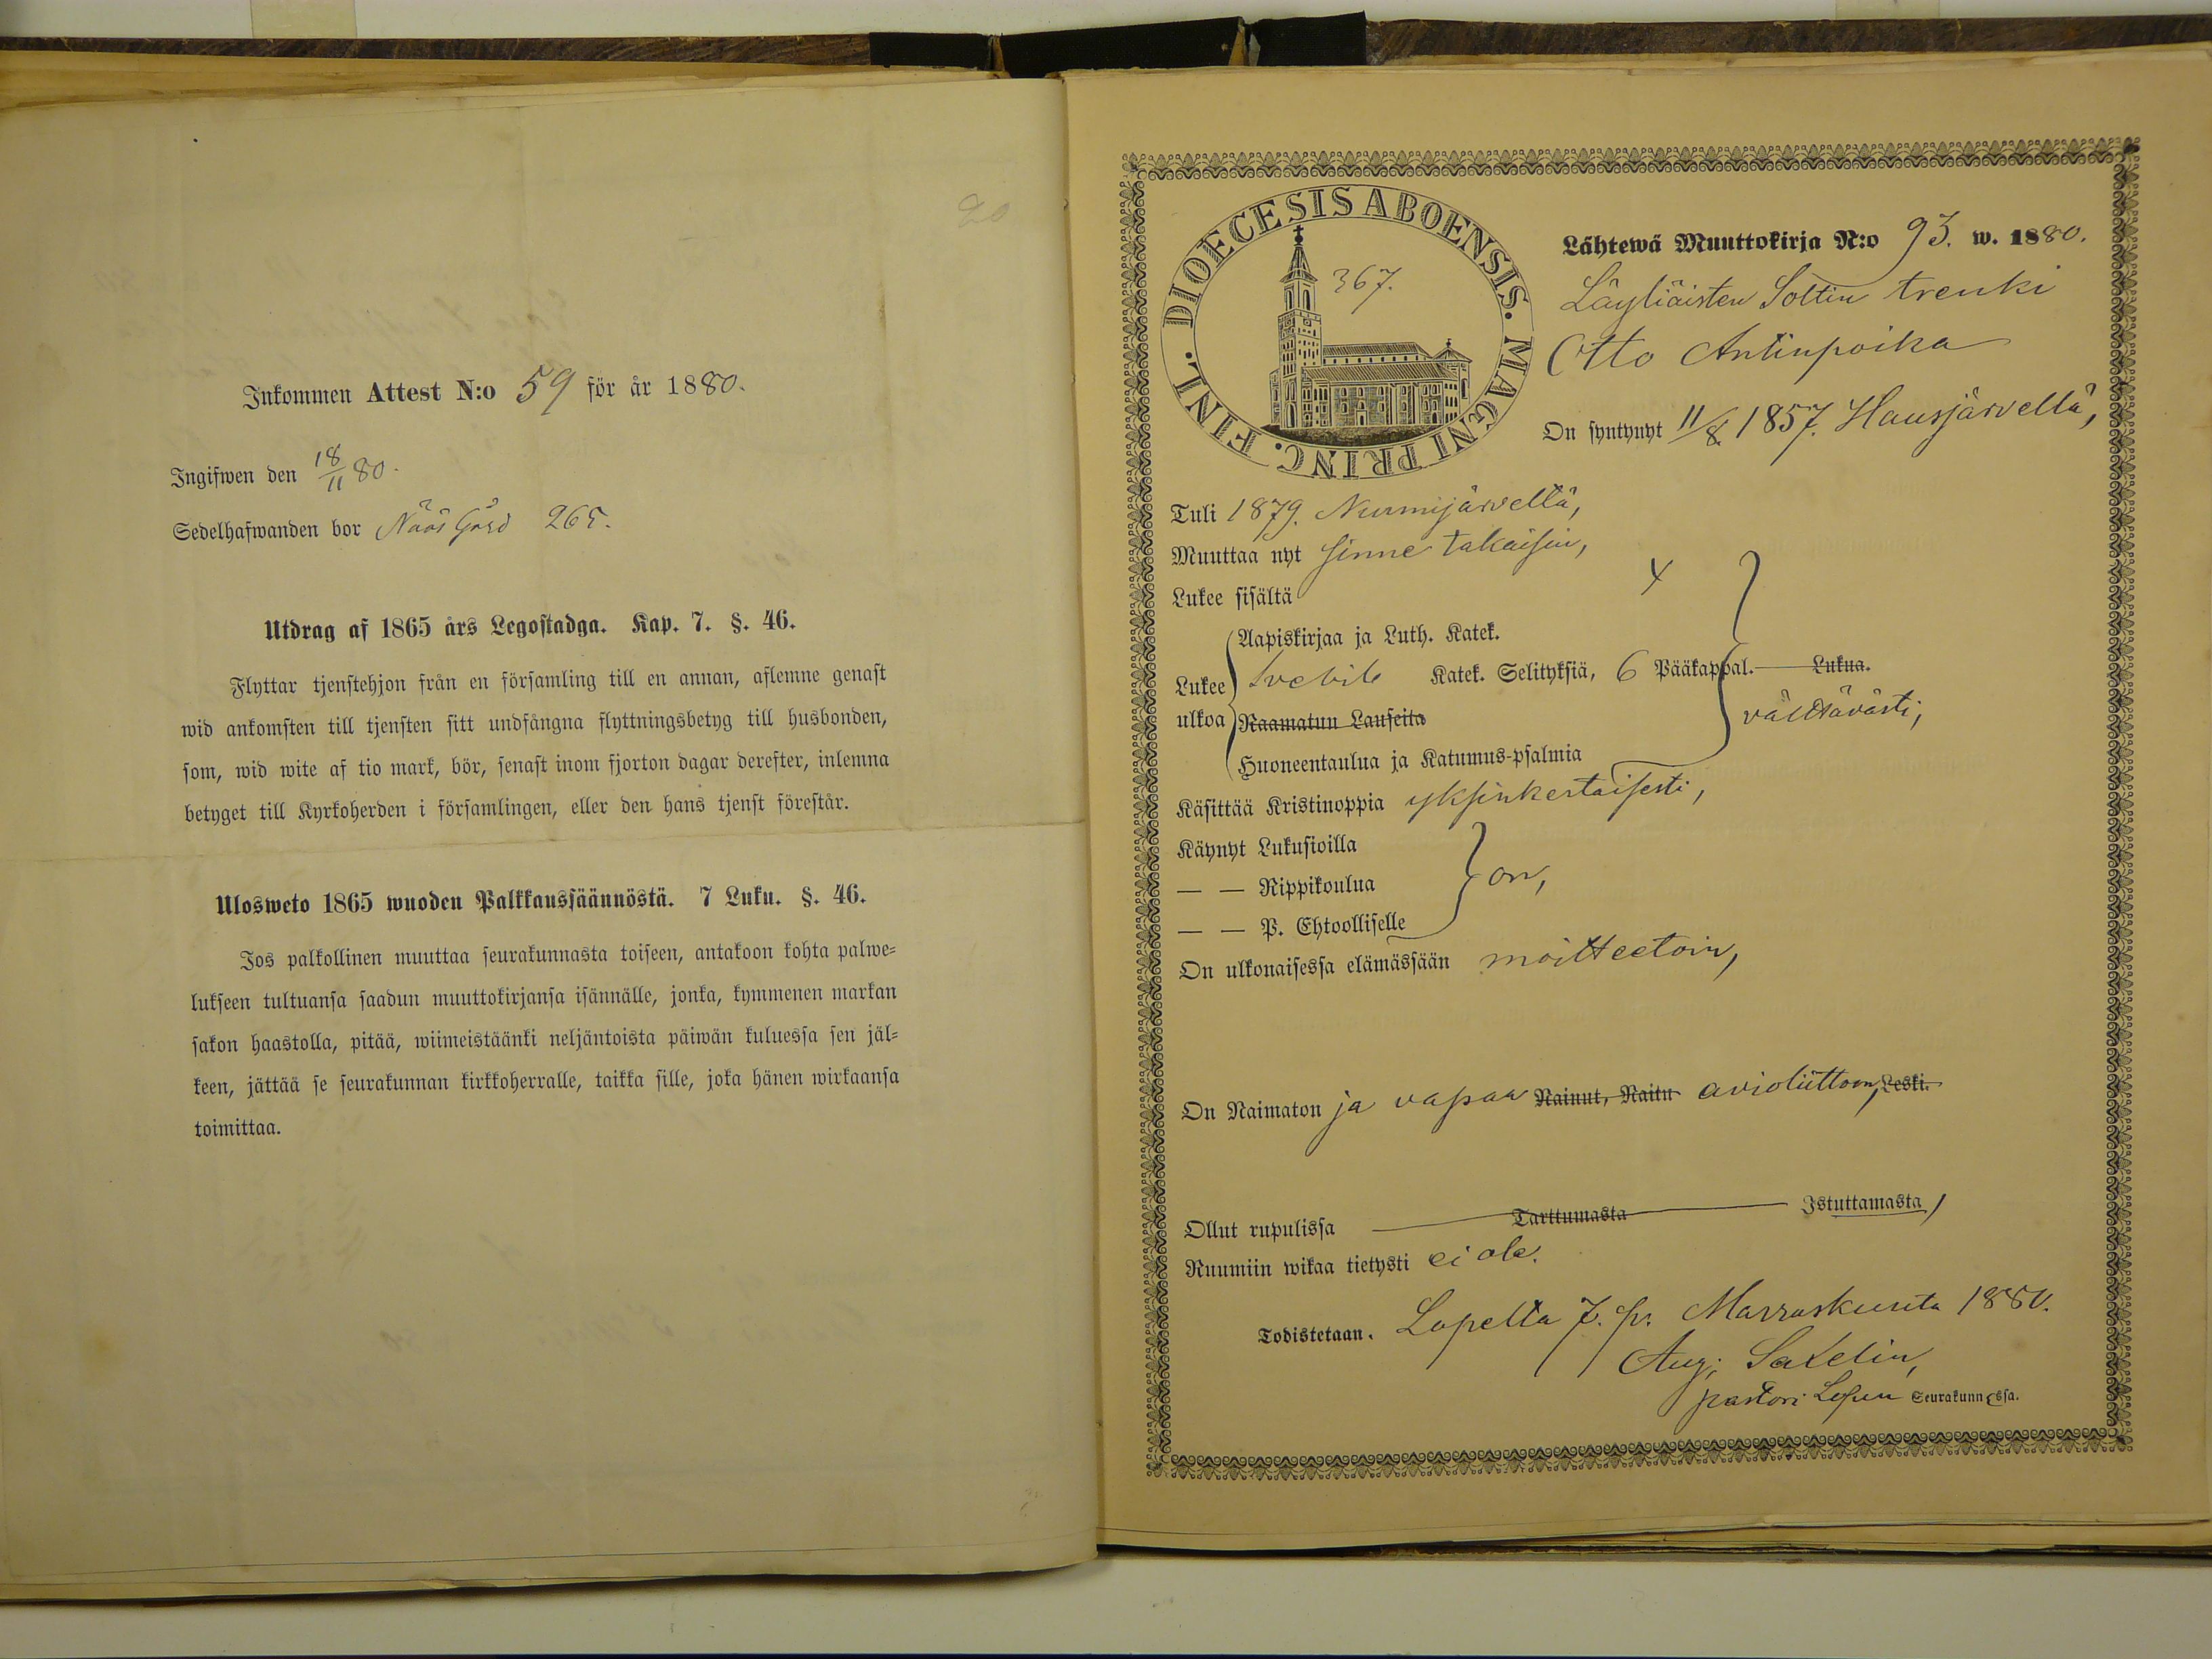 20
Inkommen Attest N:o 59 för år 1880.
Ingifwen den 18/11 80.
Sedelhafwanden bor Nääs Gård 265.
Utdrag af 1865 års Legostadga. Kap. 7. §. 46.
Flyttar tjenstehjon från en församling till en annan, aflemne genast
wid ankomsten till tjensten sitt undfångna flyttningsbetyg till husbonden,
som, wid wite af tio mark, bör, senast inom fjorton dagar derefter, inlemna
betyget till Kyrkoherden i församlingen, eller den hans tjenst förestår.
Ulosweto 1865 wuoden Palkkaussäännöstä. 7 Luku. §. 46.
Jos palkollinen muuttaa seurakunnasta toiseen, antakoon kohta palwe=
lukseen tultuansa saadun muuttokirjansa isännälle, jonka, kymmenen markan
sakon haastolla, pitää, wiimeistäänki neljäntoista päiwän kuluessa sen jäl=
keen, jättää se seurakunnan kirkkoherralle, taikka sille, joka hänen wirkaansa
toimittaa.
DIOECESIS ABOENSIS. MAGNI PRINC. FINL.
367.
Lähtewä Muuttokirja N:o 93. w. 1880.
Läyliäisten Soltin trenki
Otto Antinpoika
On syntynyt 11/8 1857. Hausjärvellä,
Tuli 1879. Nurmijärveltä,
Muuttaa nyt sinne takaisin,
Lukee sisältä x
Aapiskirjaa ja Luth. Katek.
Lukee Svebil. Katek. Selityksiä, 6 Pääkappal. Lukua.
ulkoa Raamatun Lauseita välttävästi,
Huoneentaulua ja Katumus-psalmia
Käsittää Kristinoppia yksinkertaisesti,
Käynyt Lukusioilla
— — Rippikoulua on,
— — P. Ehtoolliselle
On ulkonaisessa elämässään moitteetoin,
On Naimaton ja vapaa Nainut, Naitu avioliittoon, Leski.
Ollut rupulissa Tarttumasta Istuttamasta,
Ruumiin wikaa tietysti ei ole.
Todistetaan. Lopella 7. p. Marraskuuta 1880.
Aug; Sadelin,
pastori Lopen Seurakunnessa.